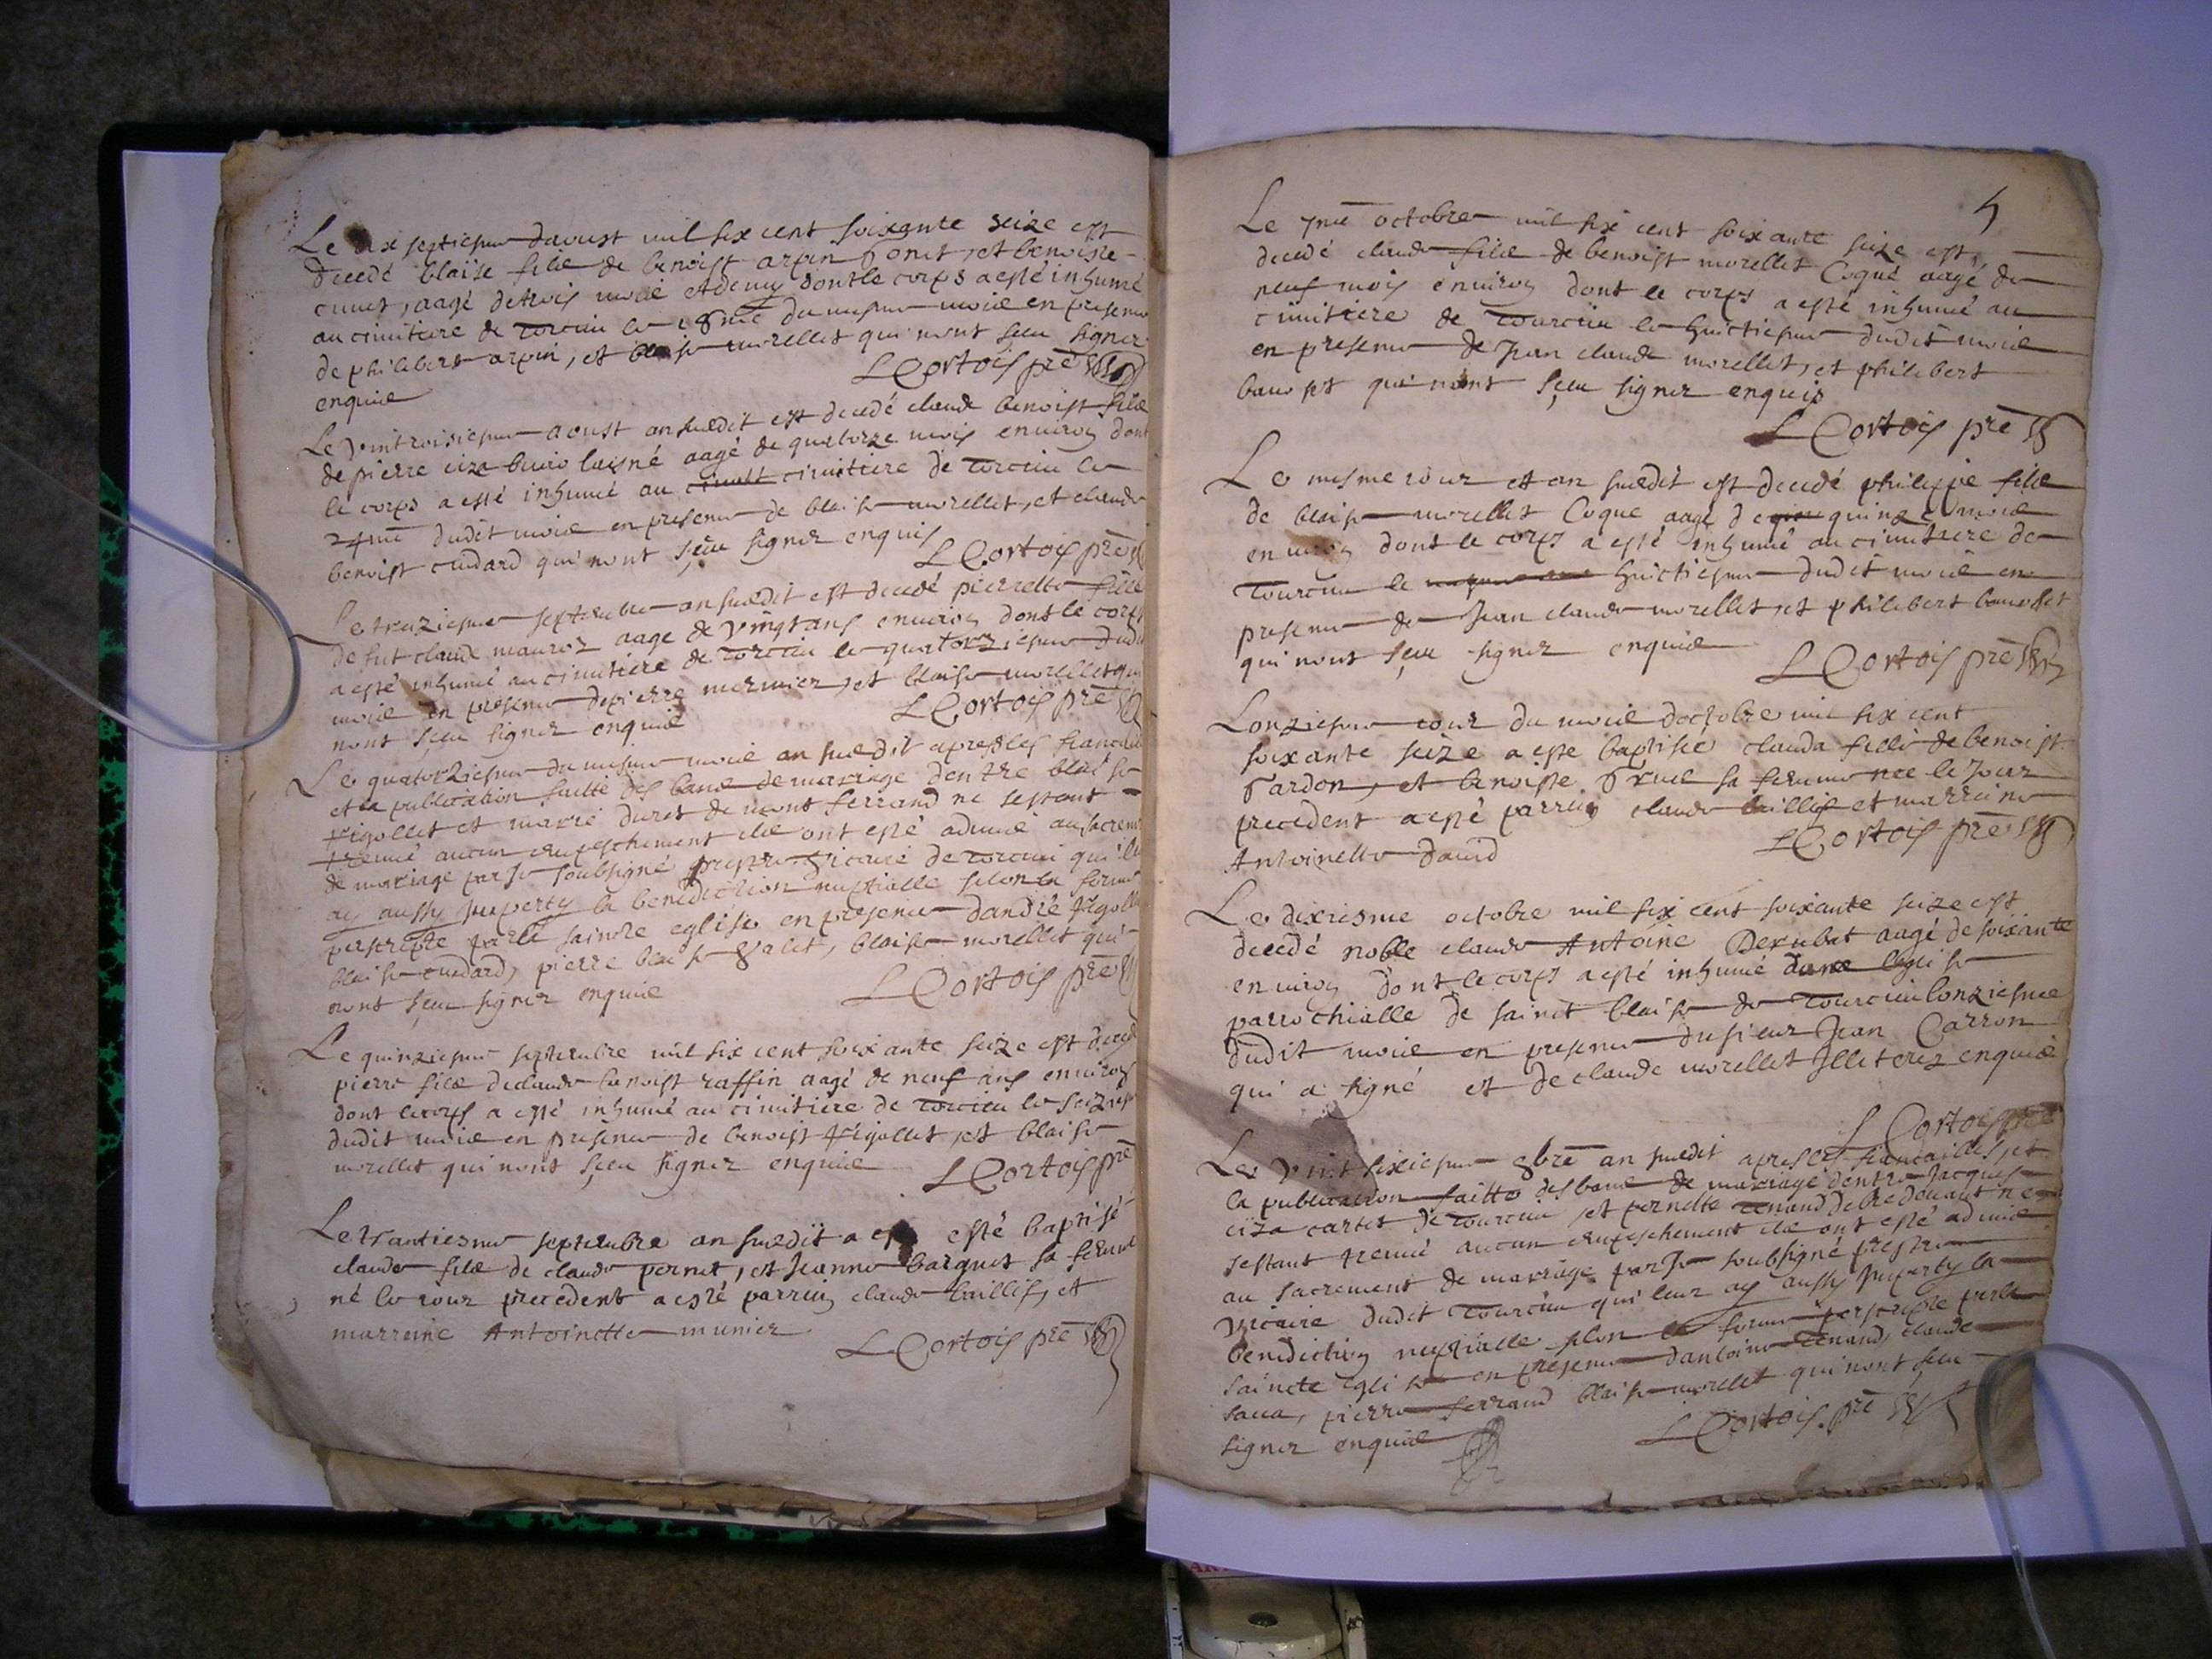 Le dix septiesme daoust mil six cent soixante seize est
decedé blaise filz de benoist arpin et benoiste
cunet, aagé de trois mois et demy dont le corps a esté inhumé
au cimitiere de torcieu le 18me du mesme mois en presence
de philibert arpin, et blaise morellet qui nont sceu signer
enquis L Cortois pre
Le vintroisiesme aoust an susdit est decedé claude benoist filz
de pierre ciza laisné aagé de quatorze mois environ dont
le corps a esté inhumé au cimitiere de torcieu le
24me dudit mois en presence de blaise morellet, et claude
benoist cudard qui nont sceu signer enquis L Cortois pre
Le treziesme septembre an susdit est decedé pierrette fille
de fut claude mauroz aage de vingt ans environ dont le corps
a esté inhumé au cimitiere de torcieu le quatorziesme dudit
mois en presence de pierre mermier, et blaise morellet qui
nont sceu signer enquis L Cortois pre
Le quatorziesme du mesme mois an susdit apres les fiancailles
et la publication faitte des bans de mariage dentre blaise
figollet et marie duret de mont ferrand ne sestant
treuvé aucun empeschement ilz ont esté admis au sacrement
de mariage par je soubsigné prestre vicaire de torcieu qui leur
ay aussy imperty la benediction nuptialle selon la forme
perscripte par la saincte eglise en presence dandré figollet
blaise cudard, pierre blaise valet, blaise morellet qui
nont sceu signer enquis L Cortois pre
Le quinziesme septembre mil six cent soixante seize est decedé
pierre filz de claude benoist raffin aagé de neuf ans environ
dont le corps a esté inhumé au cimitiere de torcieu le seiziesme
dudit mois en presence de benoist figollet, et blaise
morellet qui nont sceu signer enquis L Cortois pre
Le trantiesme septembre an susdit a esté baptisé
claude filz de claude pernet, et Jeanne barquet sa femme
né le jour precedent a esté parrein claude baillif, et
marreine Antoinette munier
L Cortois pre
5
Le 7me octobre mil six cent soixante seize est
decedé claude filz de benoist morellet Coqué aagé de
neuf mois environ dont le corps a esté inhumé au
cimitiere de tourcieu le huictiesme dudit mois
en presence de Jean claude morellet, et philibert
qui nont sceu signer enquis
L Cortois pre
Le mesme jour et an susdit est decedé philippe filz
de blaise morellet Coque aagé de quinze mois
environ dont le corps a esté inhumé au cimitiere de
tourcieu le huictiesme dudit mois en
presence de Jean claude morellet, et philibert
qui nont sceu signer enquis L Cortois pre
Lonziesme jour du mois doctobre mil six cent
soixante seize a esté baptisée clauda fille de benoist
Pardon, et benoiste sa femme née le jour
precedent a esté parrein claude baillif et marreine
Antoinette david L Cortois pre
Le dixiesme octobre mil six cent soixante seize est
decedé noble claude Antoine Derubat aagé de soixante
environ dont le corps a esté inhumé dans leglise
parrochialle de sainct blaise de tourcieu lonziesme
dudit mois en presence du sieur Jean Carron
qui a signé et de claude morellet Illiterez enquis
L Cortois pre
Le vint sixiesme 8bre an susdit apres les fiancailles, et
la publication faitte des bans de mariage dentre Jacques
ciza cartet de tourcieu, et pernette tenand ne
sestant treuvé aucun empeschement ilz ont esté admis
au sacrement de mariage par je soubsigné prestre
vicaire dudit tourcieu qui leur ay aussy imperty la
benediction nuptialle selon la forme perscripte par la
saincte eglise en presence dantoine tenand, claude
sava, pierre ferrand blaise morellet qui nont sceu
signer enquis L Cortois pre